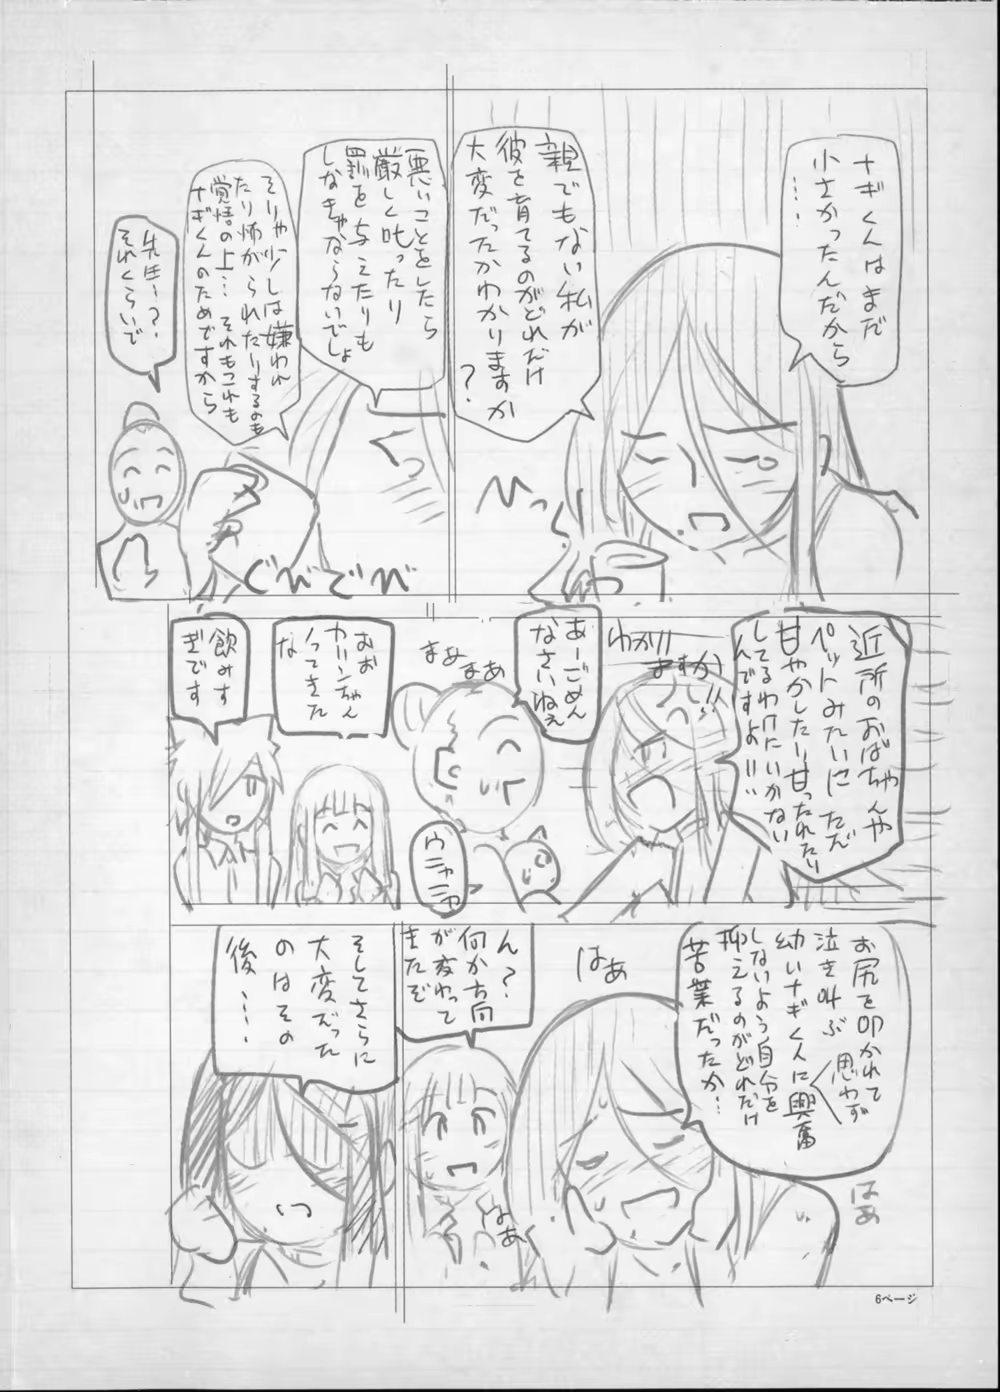 ナギくんはまだ
小さかったんだから
……
親でもない私が
彼を育てるのがどれだけ
大変だったかわかりますか
？
ひっ
悪いことをしたら
厳しく叱ったり
罰を与えたりも
しなきゃならないでしょ
そりゃ少しは嫌われ
たり怖がられたりするのも
覚悟の上… それもこれも
ナギくんのためですから
先生〜？
それくらいで
ぐびぐび
近所のおばちゃんや
ペットみたいにただ
甘やかしたり甘ったれたり
してるわけにいかない
んですよ!!
わかり
ますかー!!
あーごめん
なさいねぇ
まぁまぁ
ウニャニャ
おお
カリンちゃん
な
飲みす
ぎです
はぁ
はぁ
はぁ
ん？
何か方向
が変わって
きたぞ
そしてさらに
大変だった
のはその
後……
6ページ